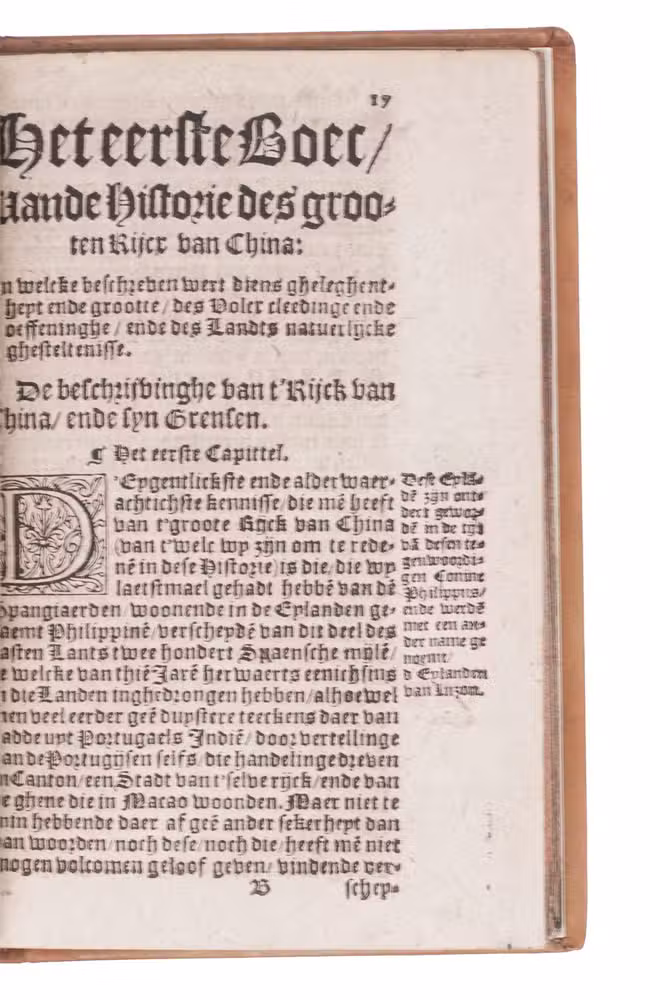 17
Het eerste Boec/
vande Historie des groo-
ten Rijcx van China:
n welcke beschreven wert diens gheleghent-
heyt ende grootte/ des Volcx cleedinge ende
oeffeninghe/ ende des Landts natuerlijcke
ghesteltenisse.
De beschrijvinghe van t'Rijck van
hina/ ende syn Grensen.
¶ Het eerste Capittel.
D'Eygentlickste ende alderwaer-
achtichste kennisse/ die mē heeft
van t'groote Rijck van China
(van t'welc wy zijn om te rede-
nē in dese Historie) is die/ die wy
laetstmael gehadt hebbē van dē
Spangiaerden/ woonende in de Eylanden ge-
aemt Philippinē/ verscheydē van dit deel des
asten Lants twee hondert Spaensche mylē/
e welcke van thiē Jarē herwaerts eenichsins
n die Landen inghedrongen hebben/ alhoewel
men veel eerder geē duystere teeckens daer van
adde uyt Portugaels Indiē/ door vertellinge
an de Portugijsen selfs/ die handelinge dreven
n Canton/ een Stadt van t'selve rijck/ ende van
e ghene die in Macao woonden. Maer niet te
min hebbende daer af geē ander sekerheyt dan
an woorden/ noch dese/ noch die/ heeft mē niet
mogen volcomen geloof geven/ vindende ver-
B schep-
Dese Eylā-
dē zijn ont-
dect gewor-
dē in de tijt
vā desen te-
genwoordi-
gen Coninc
Philippus/
ende werdē
met een an-
der name ge
noemt/
d'Eylanden
van Luzon.